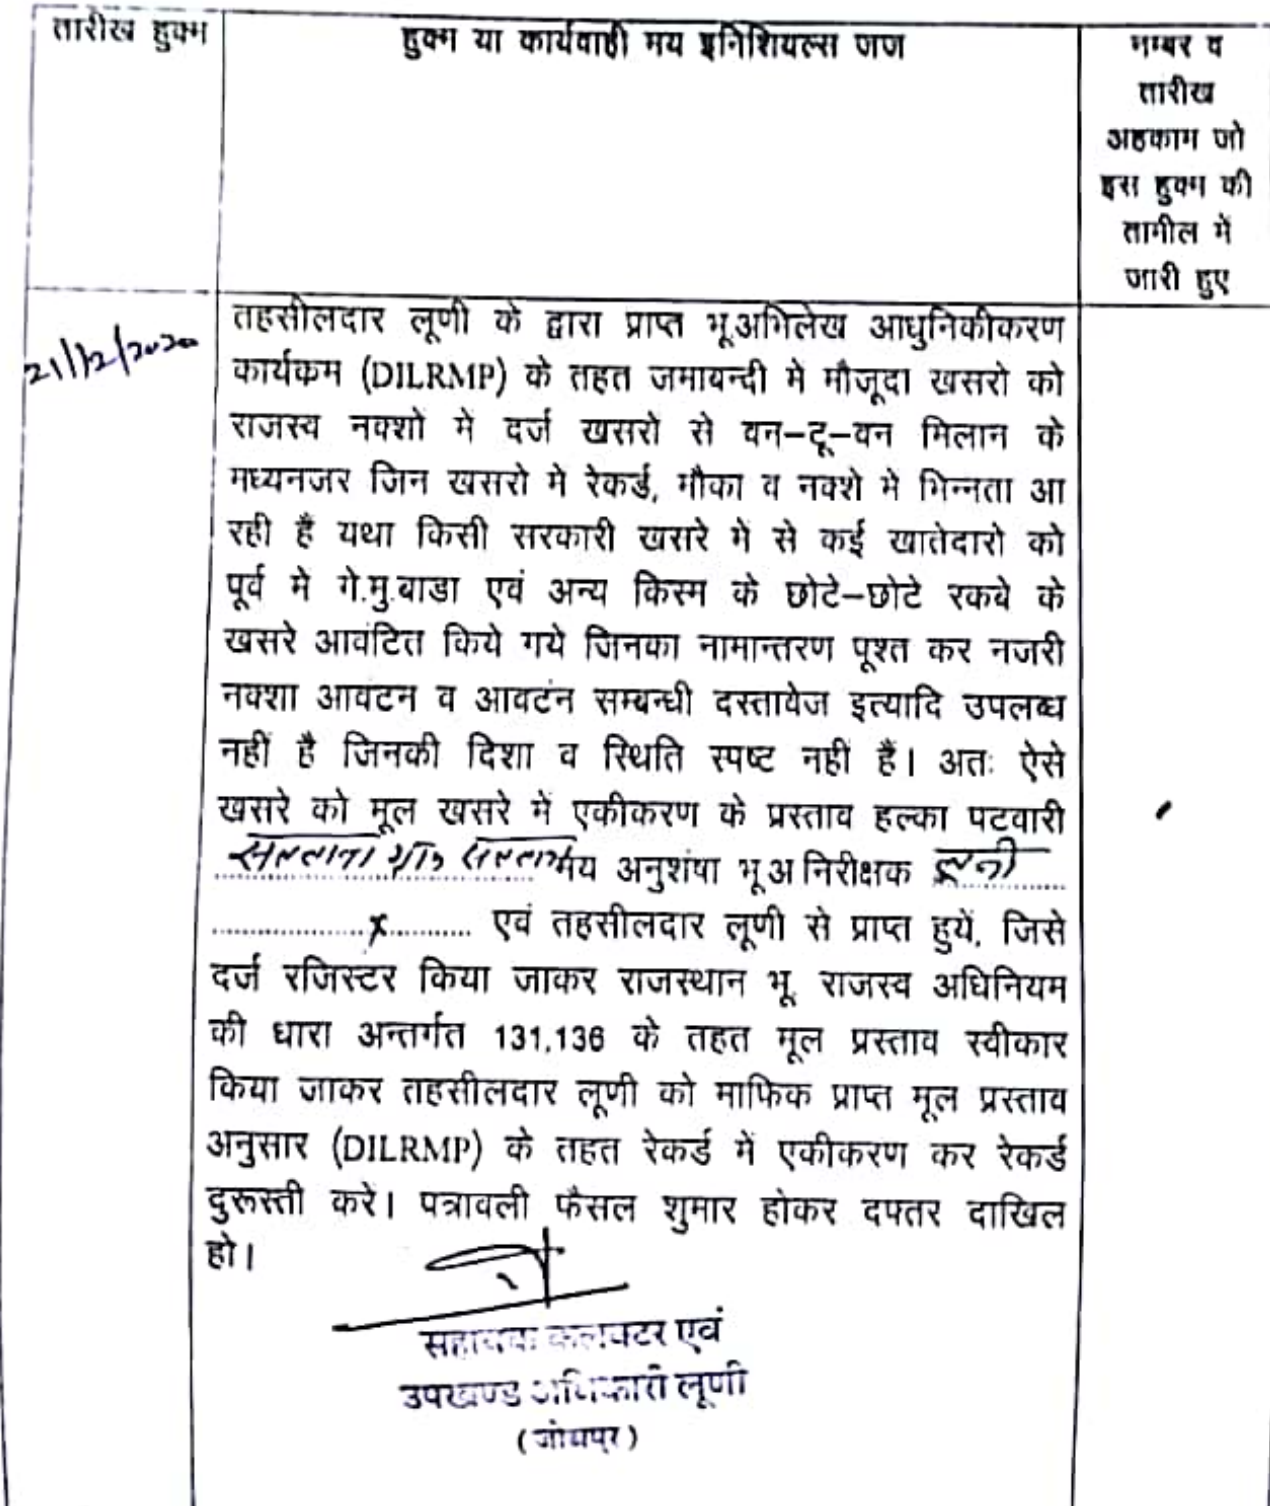 तारीख हुक्म
हुक्म या कार्यवाही मय इनिशियल्स जज
नम्बर व
तारीख
अहकाम जो
इस हुक्म की
तामील में
जारी हुए
21/12/2020
तहसीलदार लूणी के द्वारा प्राप्त भू.अभिलेख आधुनिकीकरण
कार्यकम (DILRMP) के तहत जमाबन्दी मे मौजूदा खसरो को
राजस्व नक्शो मे दर्ज खसरो से वन–टू–वन मिलान के
मध्यनजर जिन खसरो मे रेकर्ड, मौका व नक्शे मे भिन्नता आ
रही हैं यथा किसी सरकारी खसरे में से कई खातेदारो को
पूर्व मे गे.मु.बाडा एवं अन्य किस्म के छोटे–छोटे रकबे के
खसरे आवंटित किये गये जिनका नामान्तरण पूश्त कर नजरी
नक्शा आवंटन व आवटंन सम्बन्धी दस्तावेज इत्यादि उपलब्ध
नहीं है जिनकी दिशा व स्थिति स्पष्ट नहीं हैं। अतः ऐसे
खसरे को मूल खसरे में एकीकरण के प्रस्ताव हल्का पटवारी
मय अनुशंषा भू.अ निरीक्षक लूनी
...................x........... एवं तहसीलदार लूणी से प्राप्त हुयें, जिसे
दर्ज रजिस्टर किया जाकर राजस्थान भू. राजस्व अधिनियम
की धारा अन्तर्गत 131,136 के तहत मूल प्रस्ताव स्वीकार
किया जाकर तहसीलदार लूणी को माफिक प्राप्त मूल प्रस्ताव
अनुसार (DILRMP) के तहत रेकर्ड में एकीकरण कर रेकर्ड
दुरूस्ती करे। पत्रावली फैसल शुमार होकर दफ्तर दाखिल
हो।
सहायक कलक्टर एवं
उपखण्ड अधिकारी लूणी
(जोधपुर)